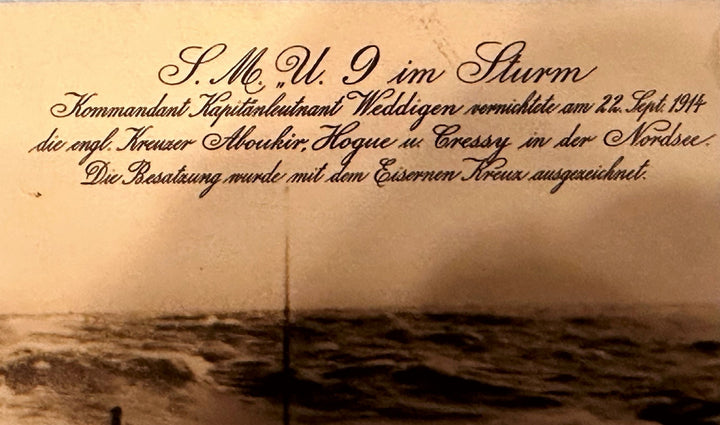 S. M. „U. 9 im Sturm
Kommandant Kapitänleutnant Weddigen vernichtete am 22. Sept. 1914
die engl. Kreuzer Aboukir, Hogue u. Cressy in der Nordsee.
Die Besatzung wurde mit dem Eisernen Kreuz ausgezeichnet.